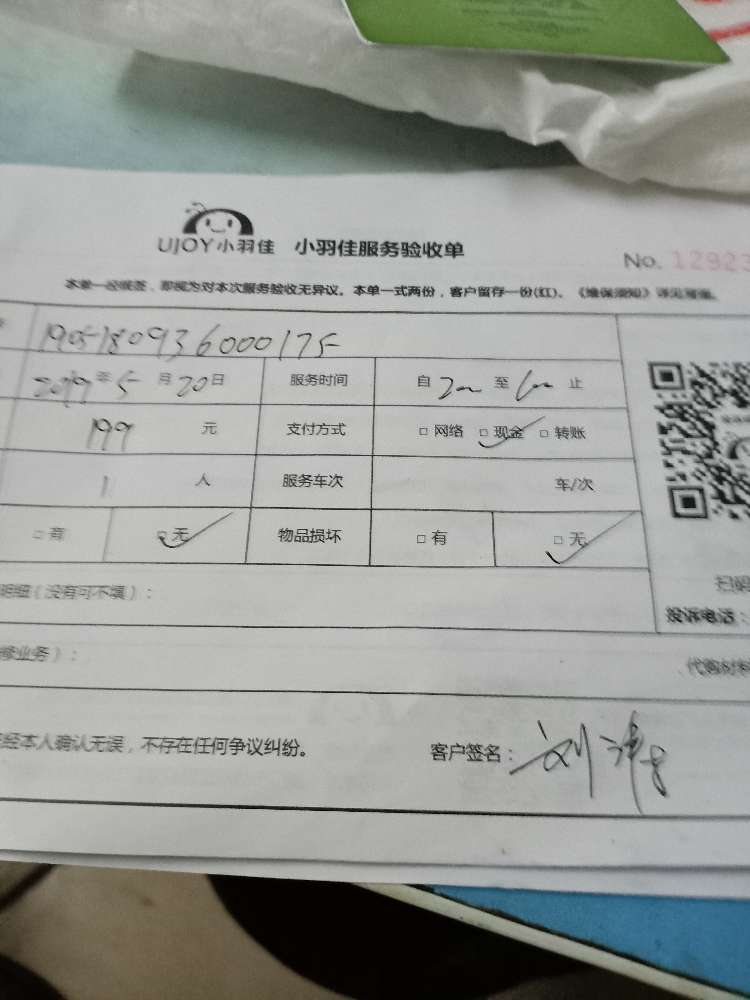 UJOY小羽佳 小羽佳服务验收单
No. 12923
本单一经客签，即视为对本次服务验收无异议。本单一式两份，客户留存一份(红)。《维保须知》详见背面。
1905180936000175
2019年5月20日 服务时间 自 至 止
199 元 支付方式 □网络 □现金 □转账
1 人 服务车次 车/次
□有 □无 物品损坏 □有 □无
明细（没有可不填）：
扫码
投诉电话：
修业务）：
代购材料
经本人确认无误，不存在任何争议纠纷。
客户签名：刘